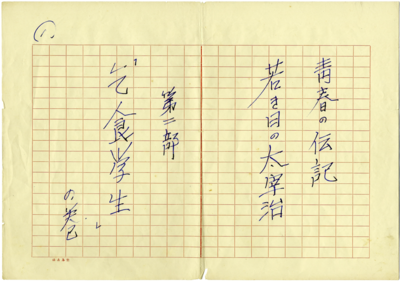 青春の伝記
若き日の太宰治
第二部
「乞食学生」
の巻
1.